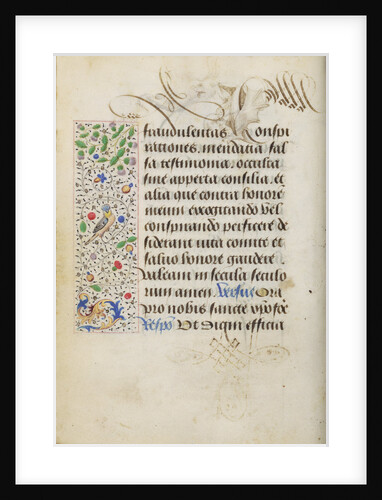 fraudulentas Conspi
rationes. mendatia fal
sa testimonia. occulta
siue apperta consilia. et
alia que contra honorē
meum excogitando vel
conspirando perficere de
siderant vita comite et
saluo honore gaudere.
Valeam in secula seculo
rum amen. Versus Ora
pro nobis sancte
Respō Vt Digni efficia